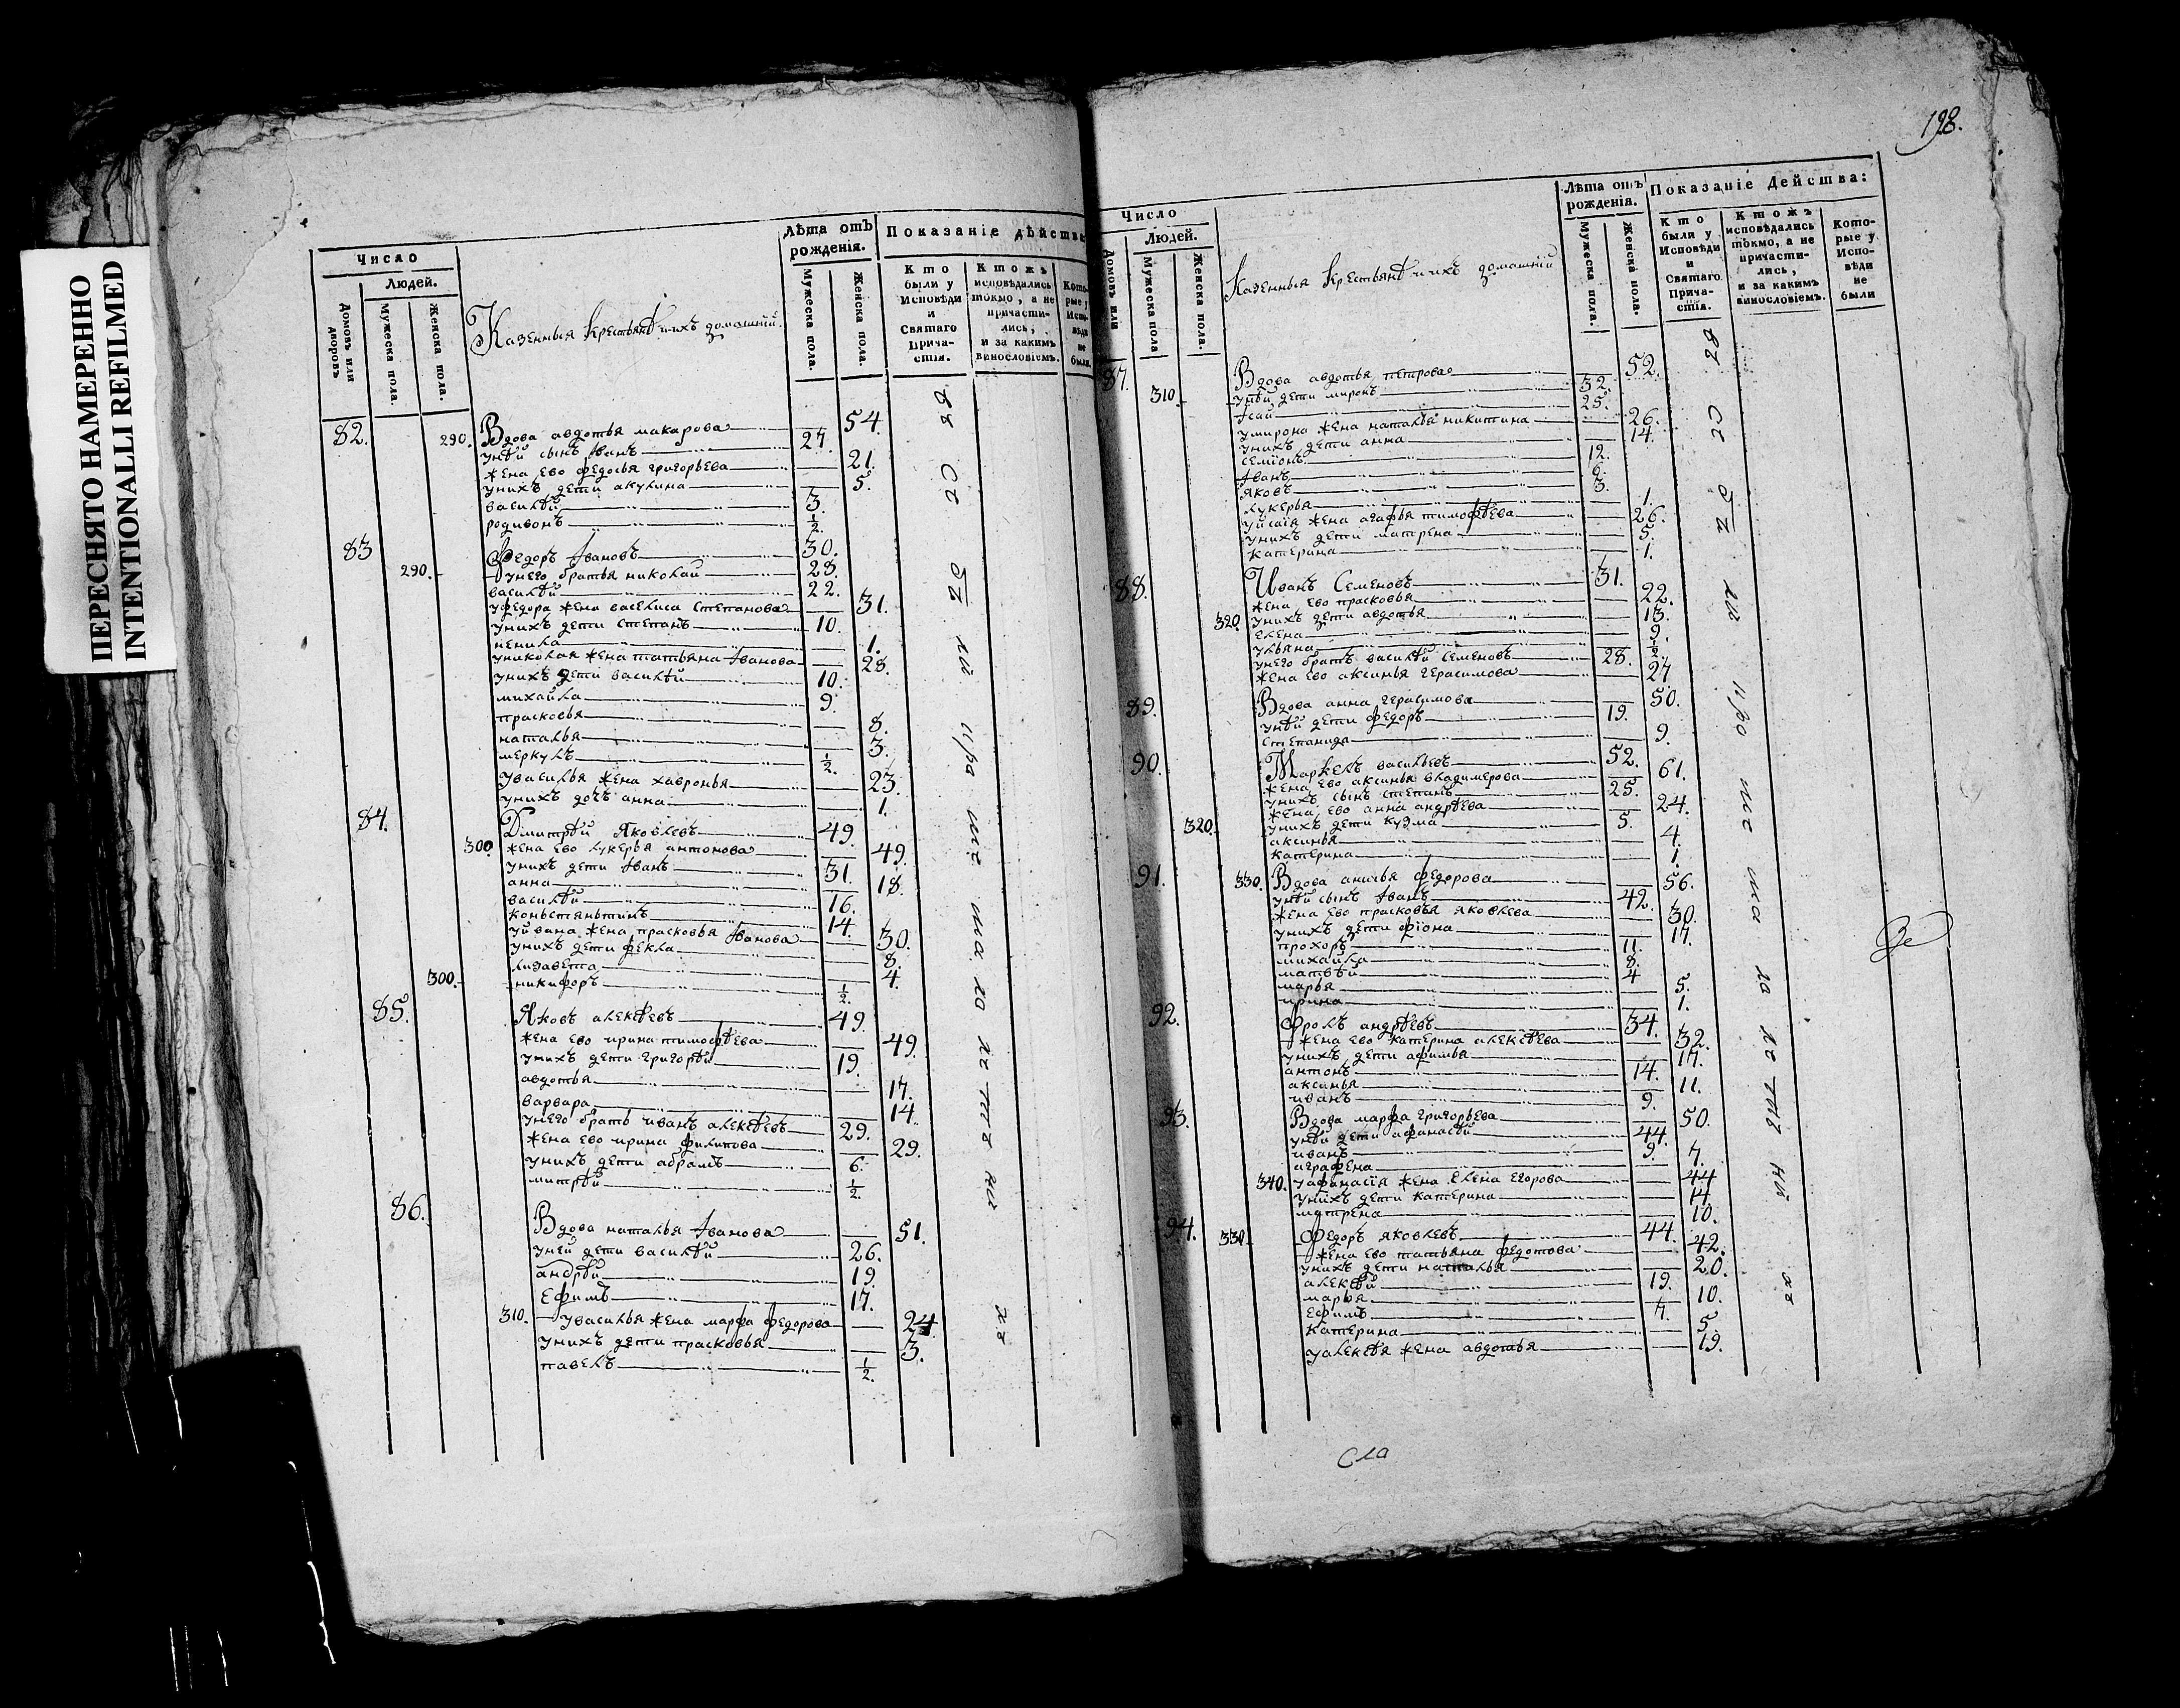 ПЕРЕСНЯТО НАМЕРЕННО
INTENTIONALLI REFILMED
198.
Число
Людей.
Домовъ или дворовъ
Мужеска пола.
Женска пола.
Казенныя крестьянѣ ихъ домашнїи
Лѣта отъ рожденія.
Мужеска пола.
Женска пола.
Показаніе дѣйства
Кто были у Исповѣди и Святаго Прича-стія.
Ктожъ исповѣдались токмо, а не причасти-лись, и за какимъ винословіемъ.
Кото-рые у Испо-вѣди не были
82. 290. Вдова авдотья макарова 54.
унѣй сынъ Іванъ 27.
жена ево федосья григорьева 21.
унихъ дети акулина 5.
василѣй 3.
родивонъ ½.
83 Федоръ Івановъ 30.
290. унего братья николай 28.
василѣй 22.
уфедора жена васелиса степанова 31.
унихъ дети степанъ 10.
ненила 1.
униколая жена татьяна Іванова 28.
унихъ дети василѣй 10.
михайла 9.
прасковья 8.
наталья 3.
меркулъ ½.
увасилья жена хавронья 23.
унихъ дочъ анна 1.
84. Димитрѣй Яковлевъ 49.
300. жена ево лукерья антонова 49.
унихъ дети Іванъ 31.
анна 18.
василѣй 16.
коньстяньтинъ 14.
уйвана жена прасковья Іванова 30.
унихъ дети фекла 8.
лизавета 4.
300. никифоръ ½.
85. Яковъ алексѣевъ 49.
жена ево ирина тимофѣева 49.
унихъ дети григорѣй 19.
авдотья 17.
варвара 14.
унего братъ иванъ алексѣевъ 29.
жена ево ирина филипова 29.
унихъ дети абрамъ 6.
митрѣй ½.
86. Вдова наталья Іванова 51.
уней дети василѣй 26.
андрѣй 19.
Ефимъ 17.
310. увасилья жена марфа федорова 24.
унихъ дети прасковья 3.
павелъ ½.
Число
Людей.
Домовъ или
Мужеска пола
Женска пола.
Казенныя крестьянѣ ихъ домашнїи
Лѣта отъ рожденія.
Мужеска пола.
Женска пола.
Показаніе Действа:
Кто были у Исповѣди и Святаго Прича-стія.
Ктожъ исповѣдались токмо, а не причасти-лись, и за какимъ винословіемъ.
Кото-рые у Испо-вѣди не были
87. Вдова авдотья петрова 52.
310. унѣй дети миронъ 32.
Ісай 25.
умирона жена наталья никитина 26.
унихъ дети анна 14.
семїонъ 12.
Іванъ 6.
яковъ 3.
лукерья 1.
уйсаія жена агафья тимофѣева 26.
унихъ дети матрена 5.
катерина 1.
88. Иванъ Семеновъ 31.
жена ево прасковья 22.
320. унихъ дети авдотья 13.
елена 9.
ульяна ½.
унего братъ василѣй семеновъ 28.
жена ево аксинья герасимова 27
89. Вдова анна герасимова 50.
унѣй дети федоръ 19.
степанида 9.
90. Маркелъ васильевъ 52.
жена ево аксинья владимерова 61.
унихъ сынъ степанъ 25.
жена ево анна андрѣева 24.
320. унихъ дети кузма 5.
аксинья 4.
катерина 1.
91. 330. Вдова анисья федорова 56.
унѣй сынъ Іванъ 42.
жена ево прасковья яковлева 30.
унихъ дети фїона 17.
прохоръ 11.
михайла 8.
матвѣй 4
марья 5.
ирина 1.
92. Фролъ андрѣевъ 34.
жена ево катерина алексѣева 32.
унихъ дети афимья 17.
антонъ 14.
аксинья 11.
иванъ 9.
93. Вдова марфа григорьева 50.
унѣй дети афанасѣй 44.
иванъ 9.
аграфена 7.
340. уафанасїя жена елена егорова 44
унихъ дети катерина 14.
матрена 10.
94. 330. Федоръ яковлевъ 44.
жена ево татьяна федотова 42.
унихъ дети наталья 20.
алексѣй 19.
марья 10.
Ефимъ 7.
катерина 5.
уалексѣя жена авдотья 19.
сла